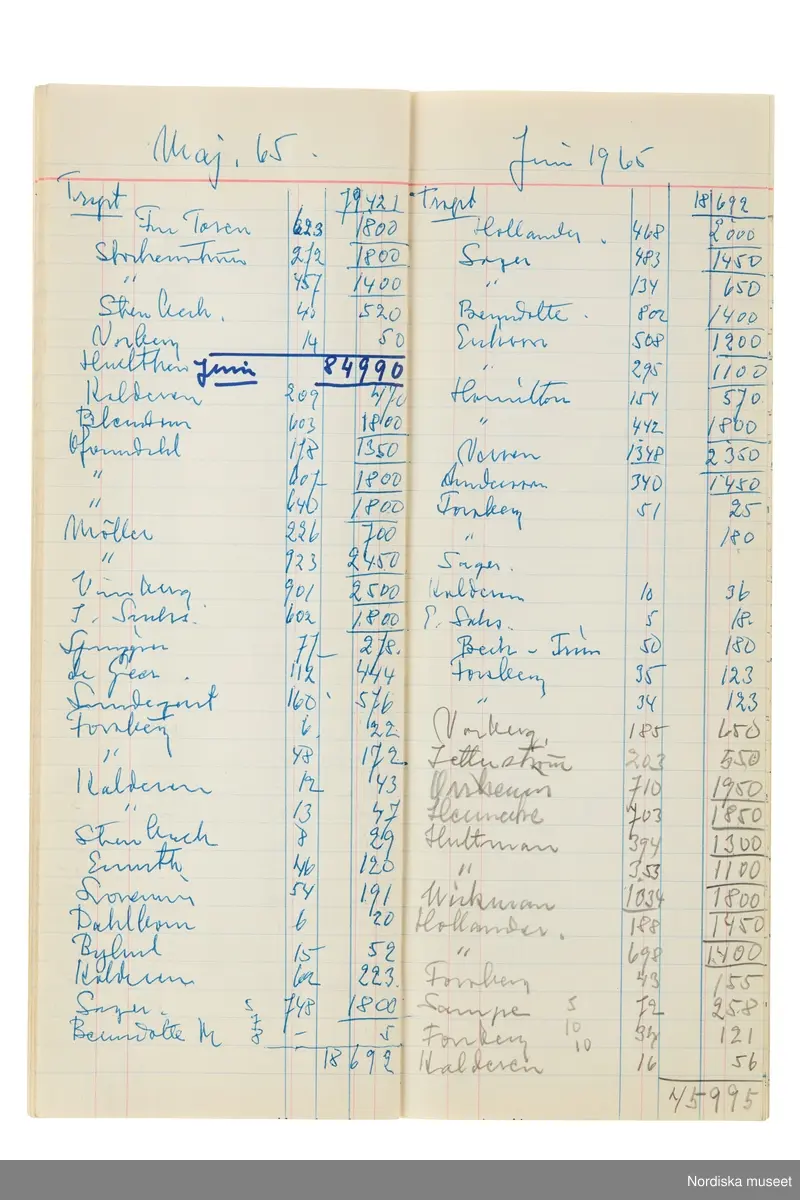 Maj. 65.
Trspt 79421
Fru Toren 623 1800
Stockenström 272 1800
" 457 1400
Stenbeck. 40 520
Norberg 14 50
Hulthén Juni 84990
Kalderen 209 470
Blendow 603 1800
178 1350
" 607 1800
" 640 1800
Möller 226 700
" 923 2450
Vinberg 901 2500
I. Sachs. 602 1800
77 278.
de Geer. 112 444
Sundequist 160 576
Forsberg 6 22
" 48 172
Kalderen 12 43
" 13 47
Stenbeck 8 29
46 120
54 191
Dahlbom 6 20
Bylund 15 52
Kalderen 62 223
Sager. 5/7 748 1800
Bernadotte M 8/8 – 5
18692
Juni 1965
Trspt 18692
Hollander. 468 2000
Sager 483 1450
" 134 650
Bernadotte. 802 1400
508 1200
" 295 1100
Hamilton 154 570
" 442 1800
1348 2350
Andersson 340 1450
Forsberg 51 25
" 180
Sager.
Kalderen 10 36
E. Sachs. 5 18.
Beck-Friis 50 180
Forsberg 35 123
" 34 123
Norberg, 185 650
Zetterström 203 550
710 1950
703 1850
Hultman 394 1300
" 353 1100
Wirkman 1034 1800
Hollander. 188 1450
" 698 1400
Forsberg 43 155
Sampe 5/10 72 258
Forsberg 10 34 121
Kalderen 16 56
45995
Nordiska museet